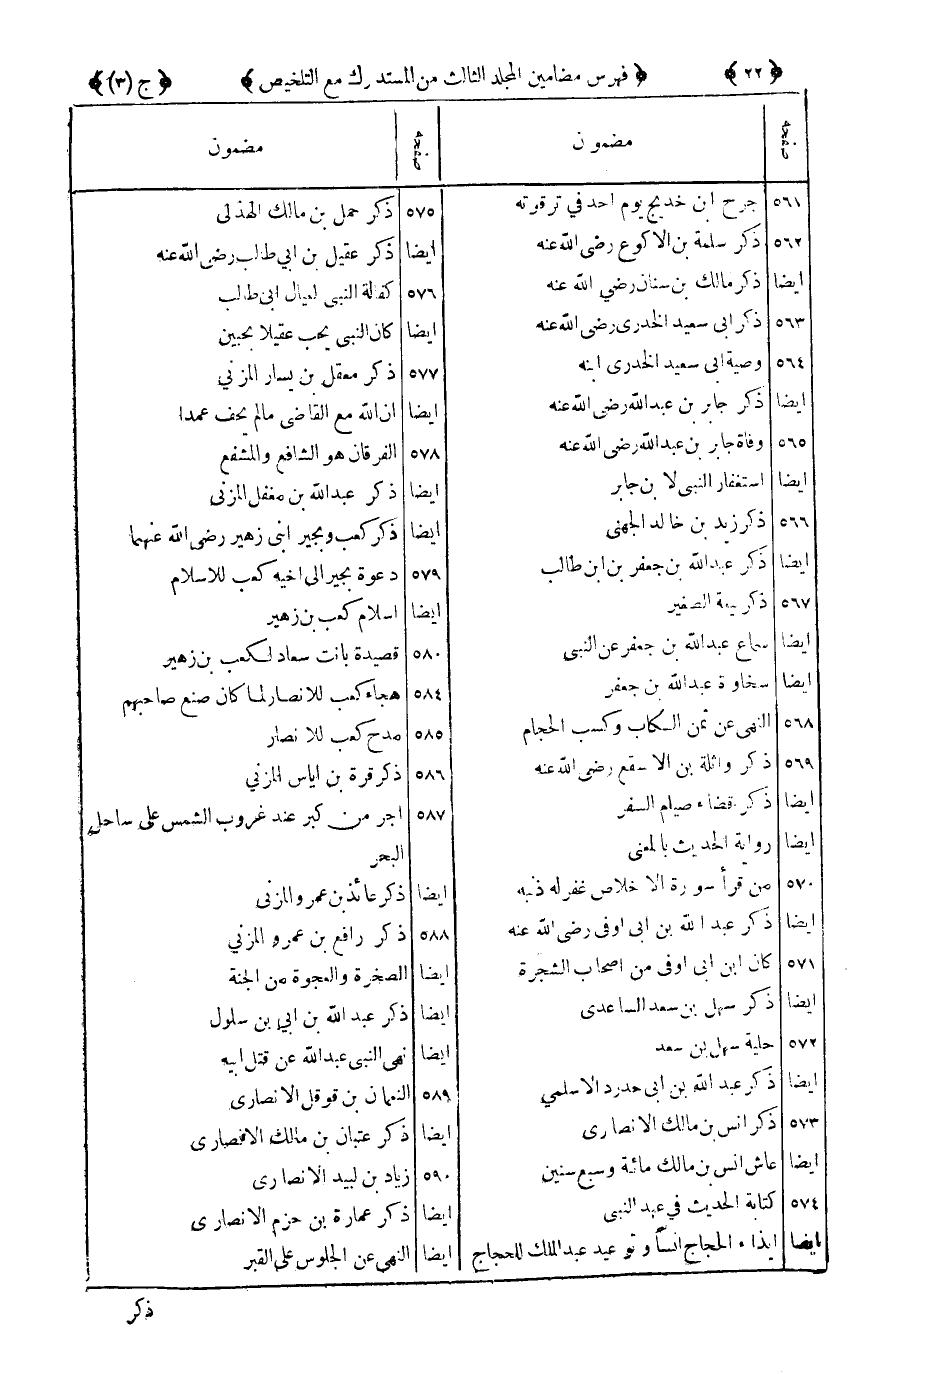 ﴿ ٢٢ ﴾ ﴿ فهرس مضامين المجلد الثالث من المستدرك مع التلخيص ﴾ ﴿ ج (٣) ﴾
صفحه مضمون
٥٦١ جرح ابن خديج يوم احد في ترقوته
٥٦٢ ذكر سلمة بن الاكوع رضى الله عنه
ايضا ذكر مالك بن سنان رضي الله عنه
٥٦٣ ذكر ابى سعيد الخدرى رضى الله عنه
٥٦٤ وصية ابى سعيد الخدرى ابنه
ايضا ذكر جابر بن عبدالله رضى الله عنه
٥٦٥ وفاة جابر بن عبدالله رضى الله عنه
ايضا استغفار النبى لا بن جابر
٥٦٦ ذكر زيد بن خالد الجهنى
ايضا ذكر عبدالله بن جعفر بن ابن طالب
٥٦٧ ذكر بيعة الصغير
ايضا سماع عبدالله بن جعفر عن النبى
ايضا سخاوة عبدالله بن جعفر
٥٦٨ النهى عن ثمن الكاب وكسب الحجام
٥٦٩ ذكر واثلة بن الاسقع رضى الله عنه
ايضا ذكر قضاء صيام السفر
ايضا رواية الحديث بالمعنى
٥٧٠ من قرأ سورة الاخلاص غفر له ذنبه
ايضا ذكر عبد الله بن ابى اوفى رضى الله عنه
٥٧١ كان ابن ابى اوفى من اصحاب الشجرة
ايضا ذكر سهل بن سعد الساعدى
٥٧٢ حلية سهل بن سعد
ايضا ذكر عبد الله بن ابى حدرد الاسلمي
٥٧٣ ذكر انس بن مالك الانصارى
ايضا عاش انس بن مالك مائة وسبع سنين
٥٧٤ كتابة الحديث في عهد النبى
ايضا ايذاء الحجاج انسا وتوعيد عبد الملك للحجاج
صفحه مضمون
٥٧٥ ذكر حمل بن مالك الهذلى
ايضا ذكر عقيل بن ابي طالب رضى الله عنه
٥٧٦ كفالة النبى لعيال ابى طالب
ايضا كان النبى يحب عقيلا بحبين
٥٧٧ ذكر معقل بن يسار المزني
ايضا ان الله مع القاضى مالم يحف عمدا
٥٧٨ الفرقان هو الشافع والمشفع
ايضا ذكر عبدالله بن مغفل المزنى
ايضا ذكر كعب وبجير ابنى زهير رضى الله عنهما
٥٧٩ دعوة بجير الى اخيه كعب للاسلام
ايضا اسلام كعب بن زهير
٥٨٠ قصيدة بانت سعاد لكعب بن زهير
٥٨٤ هجاء كعب للانصار لما كان صنع صاحبهم
٥٨٥ مدح كعب للانصار
٥٨٦ ذكر قرة بن اياس المزني
٥٨٧ اجر من كبر عند غروب الشمس على ساحل
البحر
ايضا ذكر عائذ بن عمرو المزنى
٥٨٨ ذكر رافع بن عمرو المزني
ايضا الصخرة والعجوة من الجنة
ايضا ذكر عبد الله بن ابي بن سلول
ايضا نهى النبى عبدالله عن قتل ابيه
٥٨٩ النعمان بن قوقل الانصارى
ايضا ذكر عتبان بن مالك الانصارى
٥٩٠ زياد بن لبيد الانصارى
ايضا ذكر عمارة بن حزم الانصارى
ايضا النهى عن الجلوس على القبر
ذكر